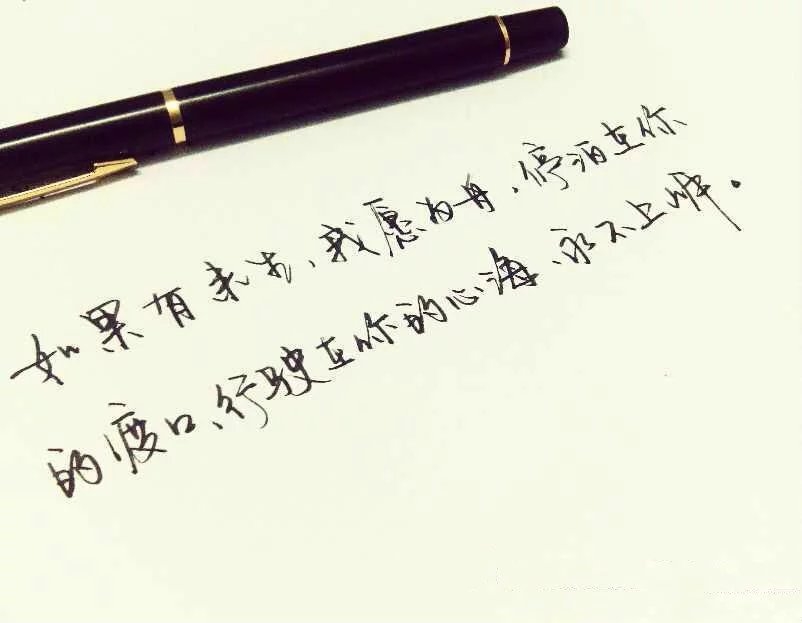 如果有来生、我愿为舟、停泊在你
的渡口、行驶在你的心海、永不上岸。